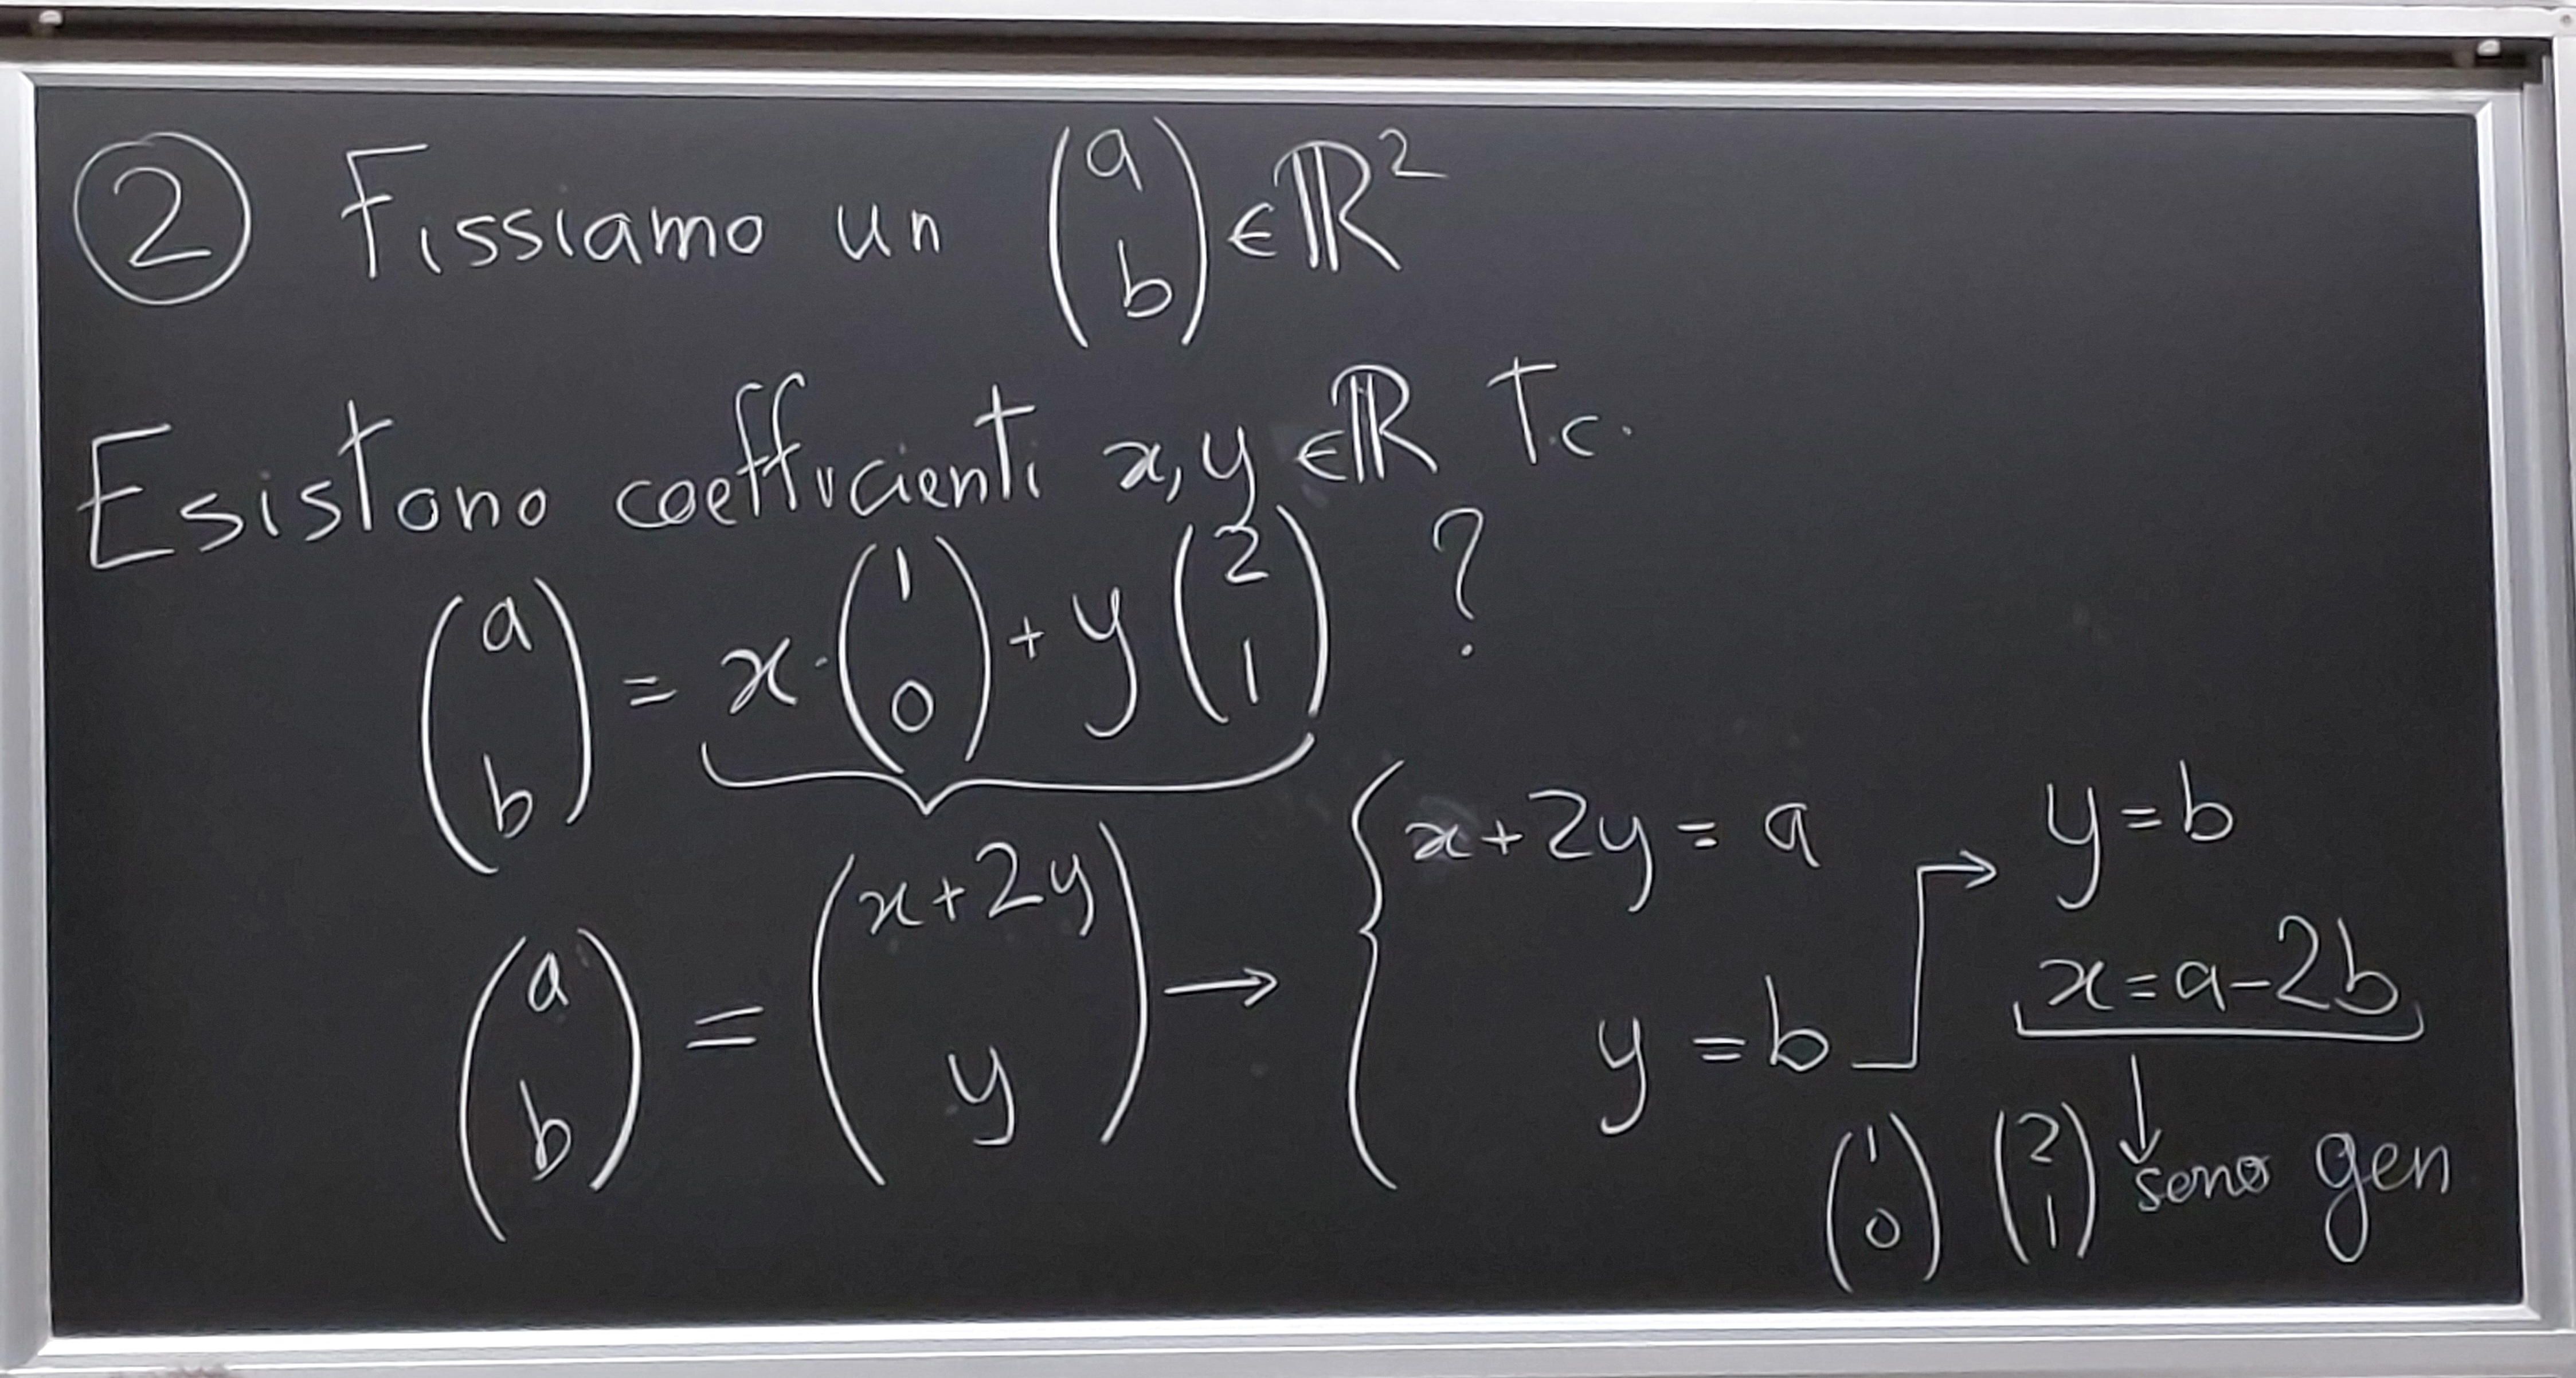 ② Fissiamo un (a b) ∈ ℝ²
Esistono coefficienti x, y ∈ ℝ T.c.
(a b) = x · (1 0) + y (2 1) ?
(a b) = (x+2y y) → { x+2y = a
y = b → y = b
x = a-2b
(1 0) (2 1) sono gen